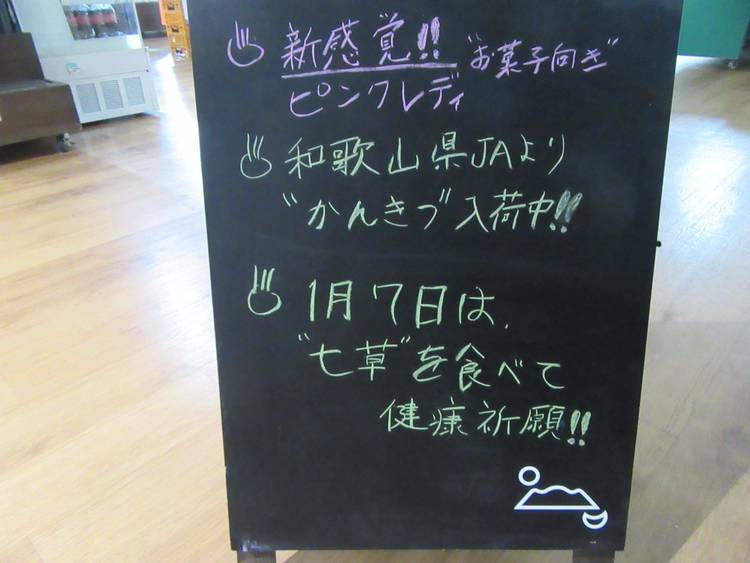 新感覚!! "お菓子向き"
ピンクレディ
和歌山県JAより
"かんきつ"入荷中!!
1月7日は、
"七草"を食べて
健康祈願!!